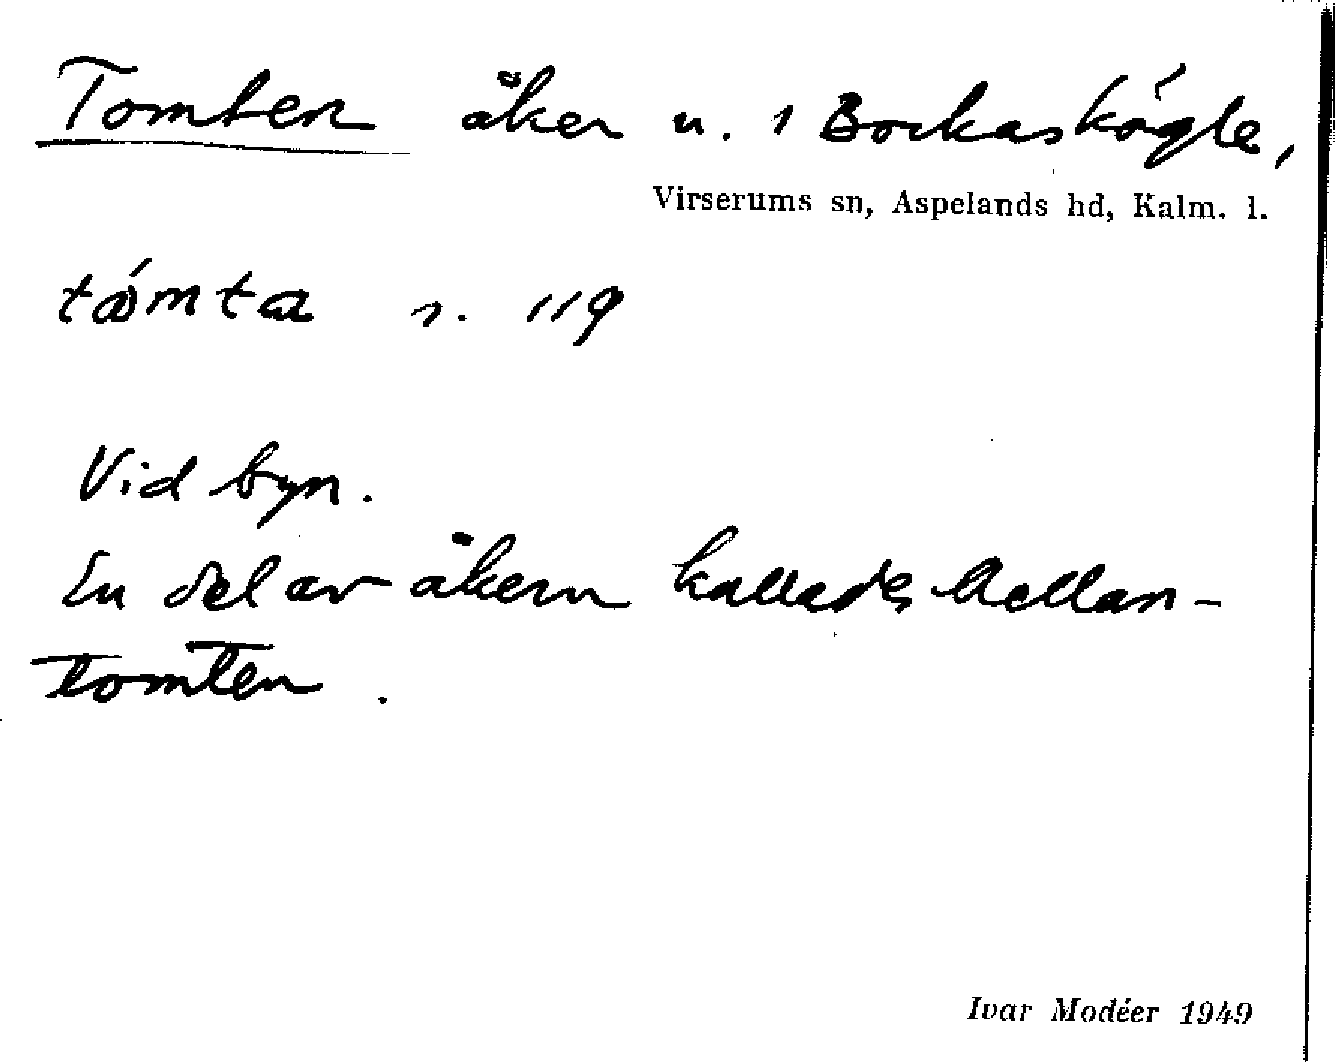 Tomten åker u. 1 Bockaskögle,
Virserums sn, Aspelands hd, Kalm. l.
tómta s. 119
Vid byn.
En del av åkern kallades Mellan-
tomten.
Ivar Modéer 1949